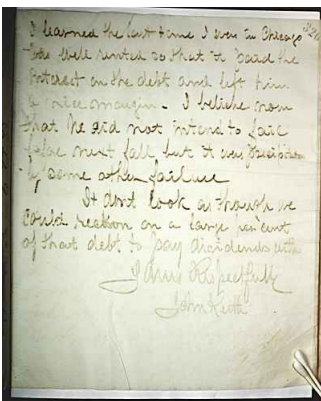 I learned the last time I was in Chicago
was well rented so that it paid the
interest on the debt and left him
a nice margin - I believe now
that he did not intend to fail
next fall but it was
by some other failure
It dont look as though we
could reckon on a large per cent
of that debt to pay dividends with
I am Respectfully
John Keith